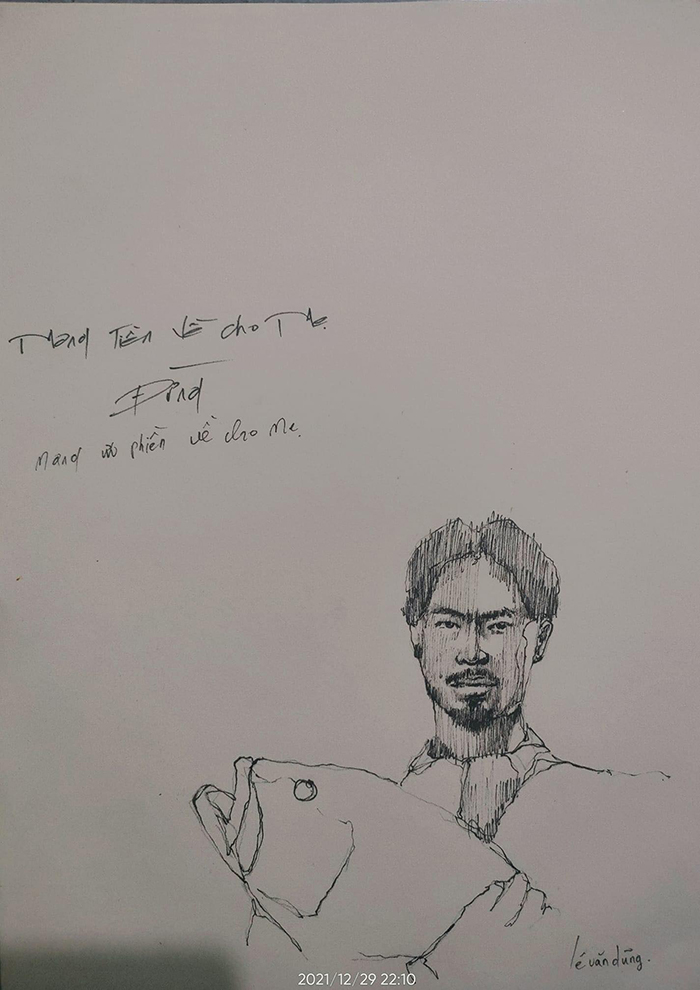 Mang Tiền Về cho Mẹ.
Đừng
Mang ưu phiền về cho Mẹ.
lê văn dũng.
2021/12/29 22:10